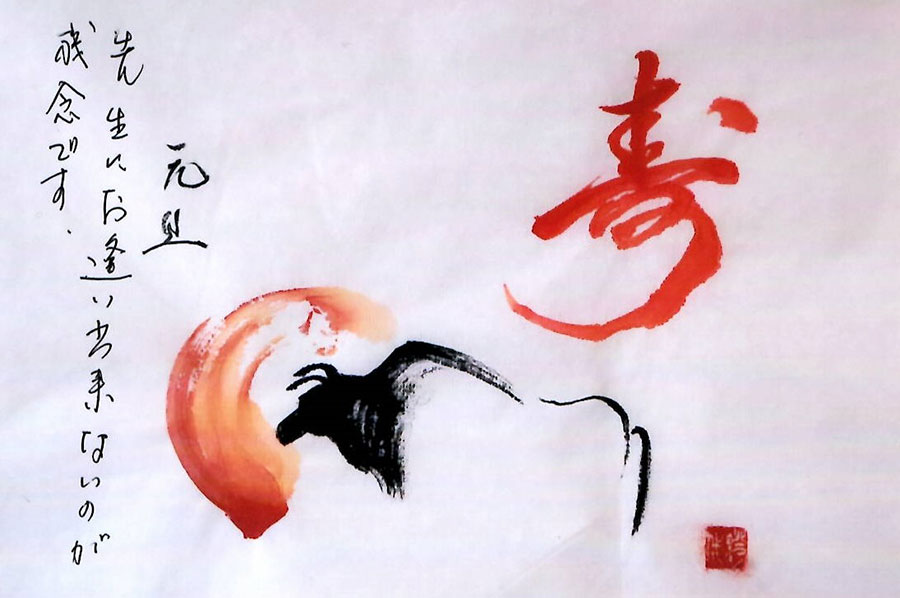 寿
元旦
先生にお逢い出来ないのが
残念です.